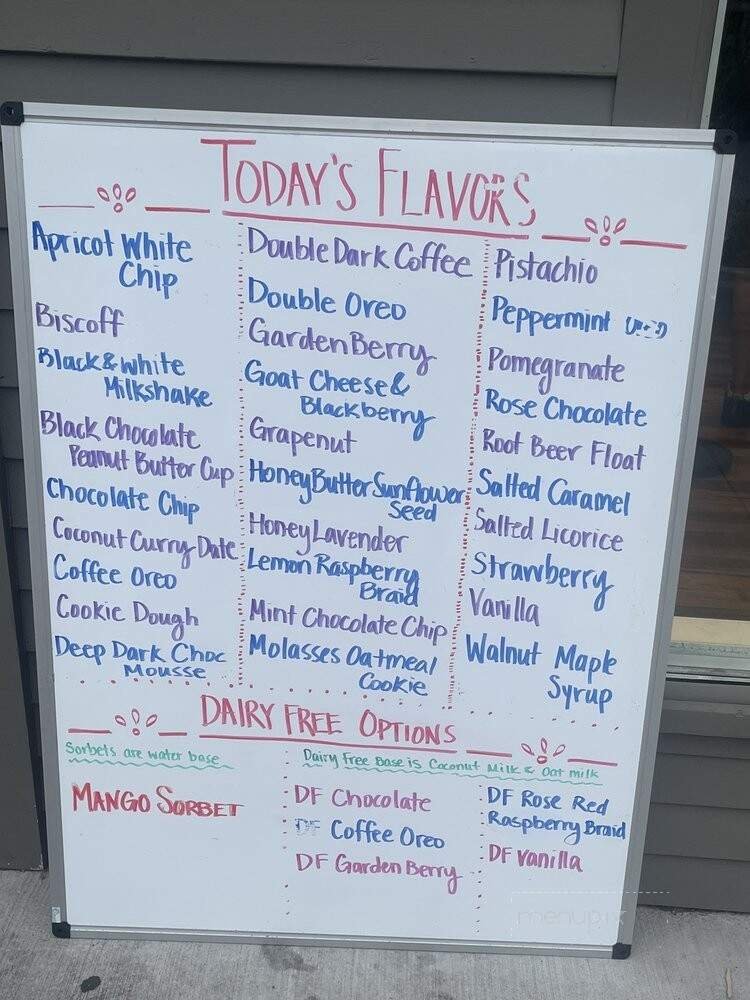 TODAY'S FLAVORS
Apricot White
Chip
Biscoff
Black & White
Milkshake
Black Chocolate
Peanut Butter Cup
Chocolate Chip
Coconut Curry Date
Coffee Oreo
Cookie Dough
Deep Dark Choc
Mousse
Double Dark Coffee
Double Oreo
Garden Berry
Goat Cheese &
Blackberry
Grapenut
Honey Butter Sunflower
Seed
Honey Lavender
Lemon Raspberry
Braid
Mint Chocolate Chip
Molasses Oatmeal
Cookie
Pistachio
Peppermint
Pomegranate
Rose Chocolate
Root Beer Float
Salted Caramel
Salted Licorice
Strawberry
Vanilla
Walnut Maple
Syrup
DAIRY FREE OPTIONS
Sorbets are water base
Dairy Free Base is Coconut Milk & Oat milk
MANGO SORBET
DF Chocolate
DF Coffee Oreo
DF Garden Berry
DF Rose Red
Raspberry Braid
DF Vanilla
menupix